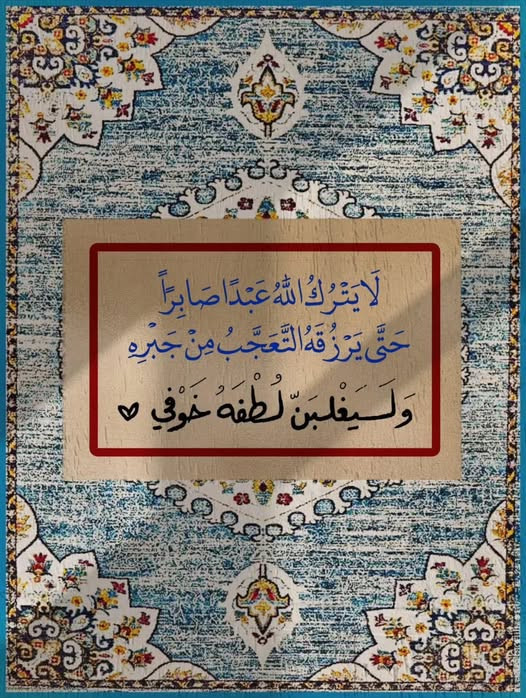 لَا يَتْرُكُ اللهُ عَبْدًا صَابِرًا
حَتَّى يَرْزُقَهُ التَّعَجُّبُ مِنْ جَبْرِهِ
وَلَسَيَغْلبَنّ لُطْفَهُ خَوْفي ♡